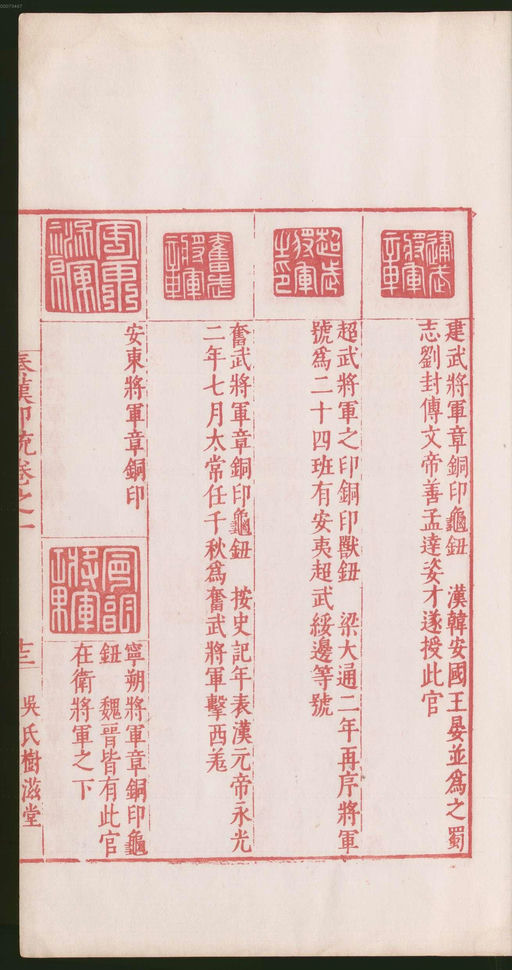 建武將軍章
建武將軍章銅印龜鈕 漢韓安國王晏並爲之蜀
志劉封傳文帝善孟達姿才遂授此官
超武將軍之印
超武將軍之印銅印獸鈕 梁大通二年再序將軍
號爲二十四班有安夷超武綏邊等號
奮武將軍章
奮武將軍章銅印龜鈕 按史記年表漢元帝永光
二年七月大常任千秋爲奮武將軍擊西羌
安東將軍章
安東將軍章銅印
寧朔將軍章
寧朔將軍章銅印龜
鈕 魏晉皆有此官
在衛將軍之下
秦漢印統卷之一
十三
吳氏樹滋堂
00073467